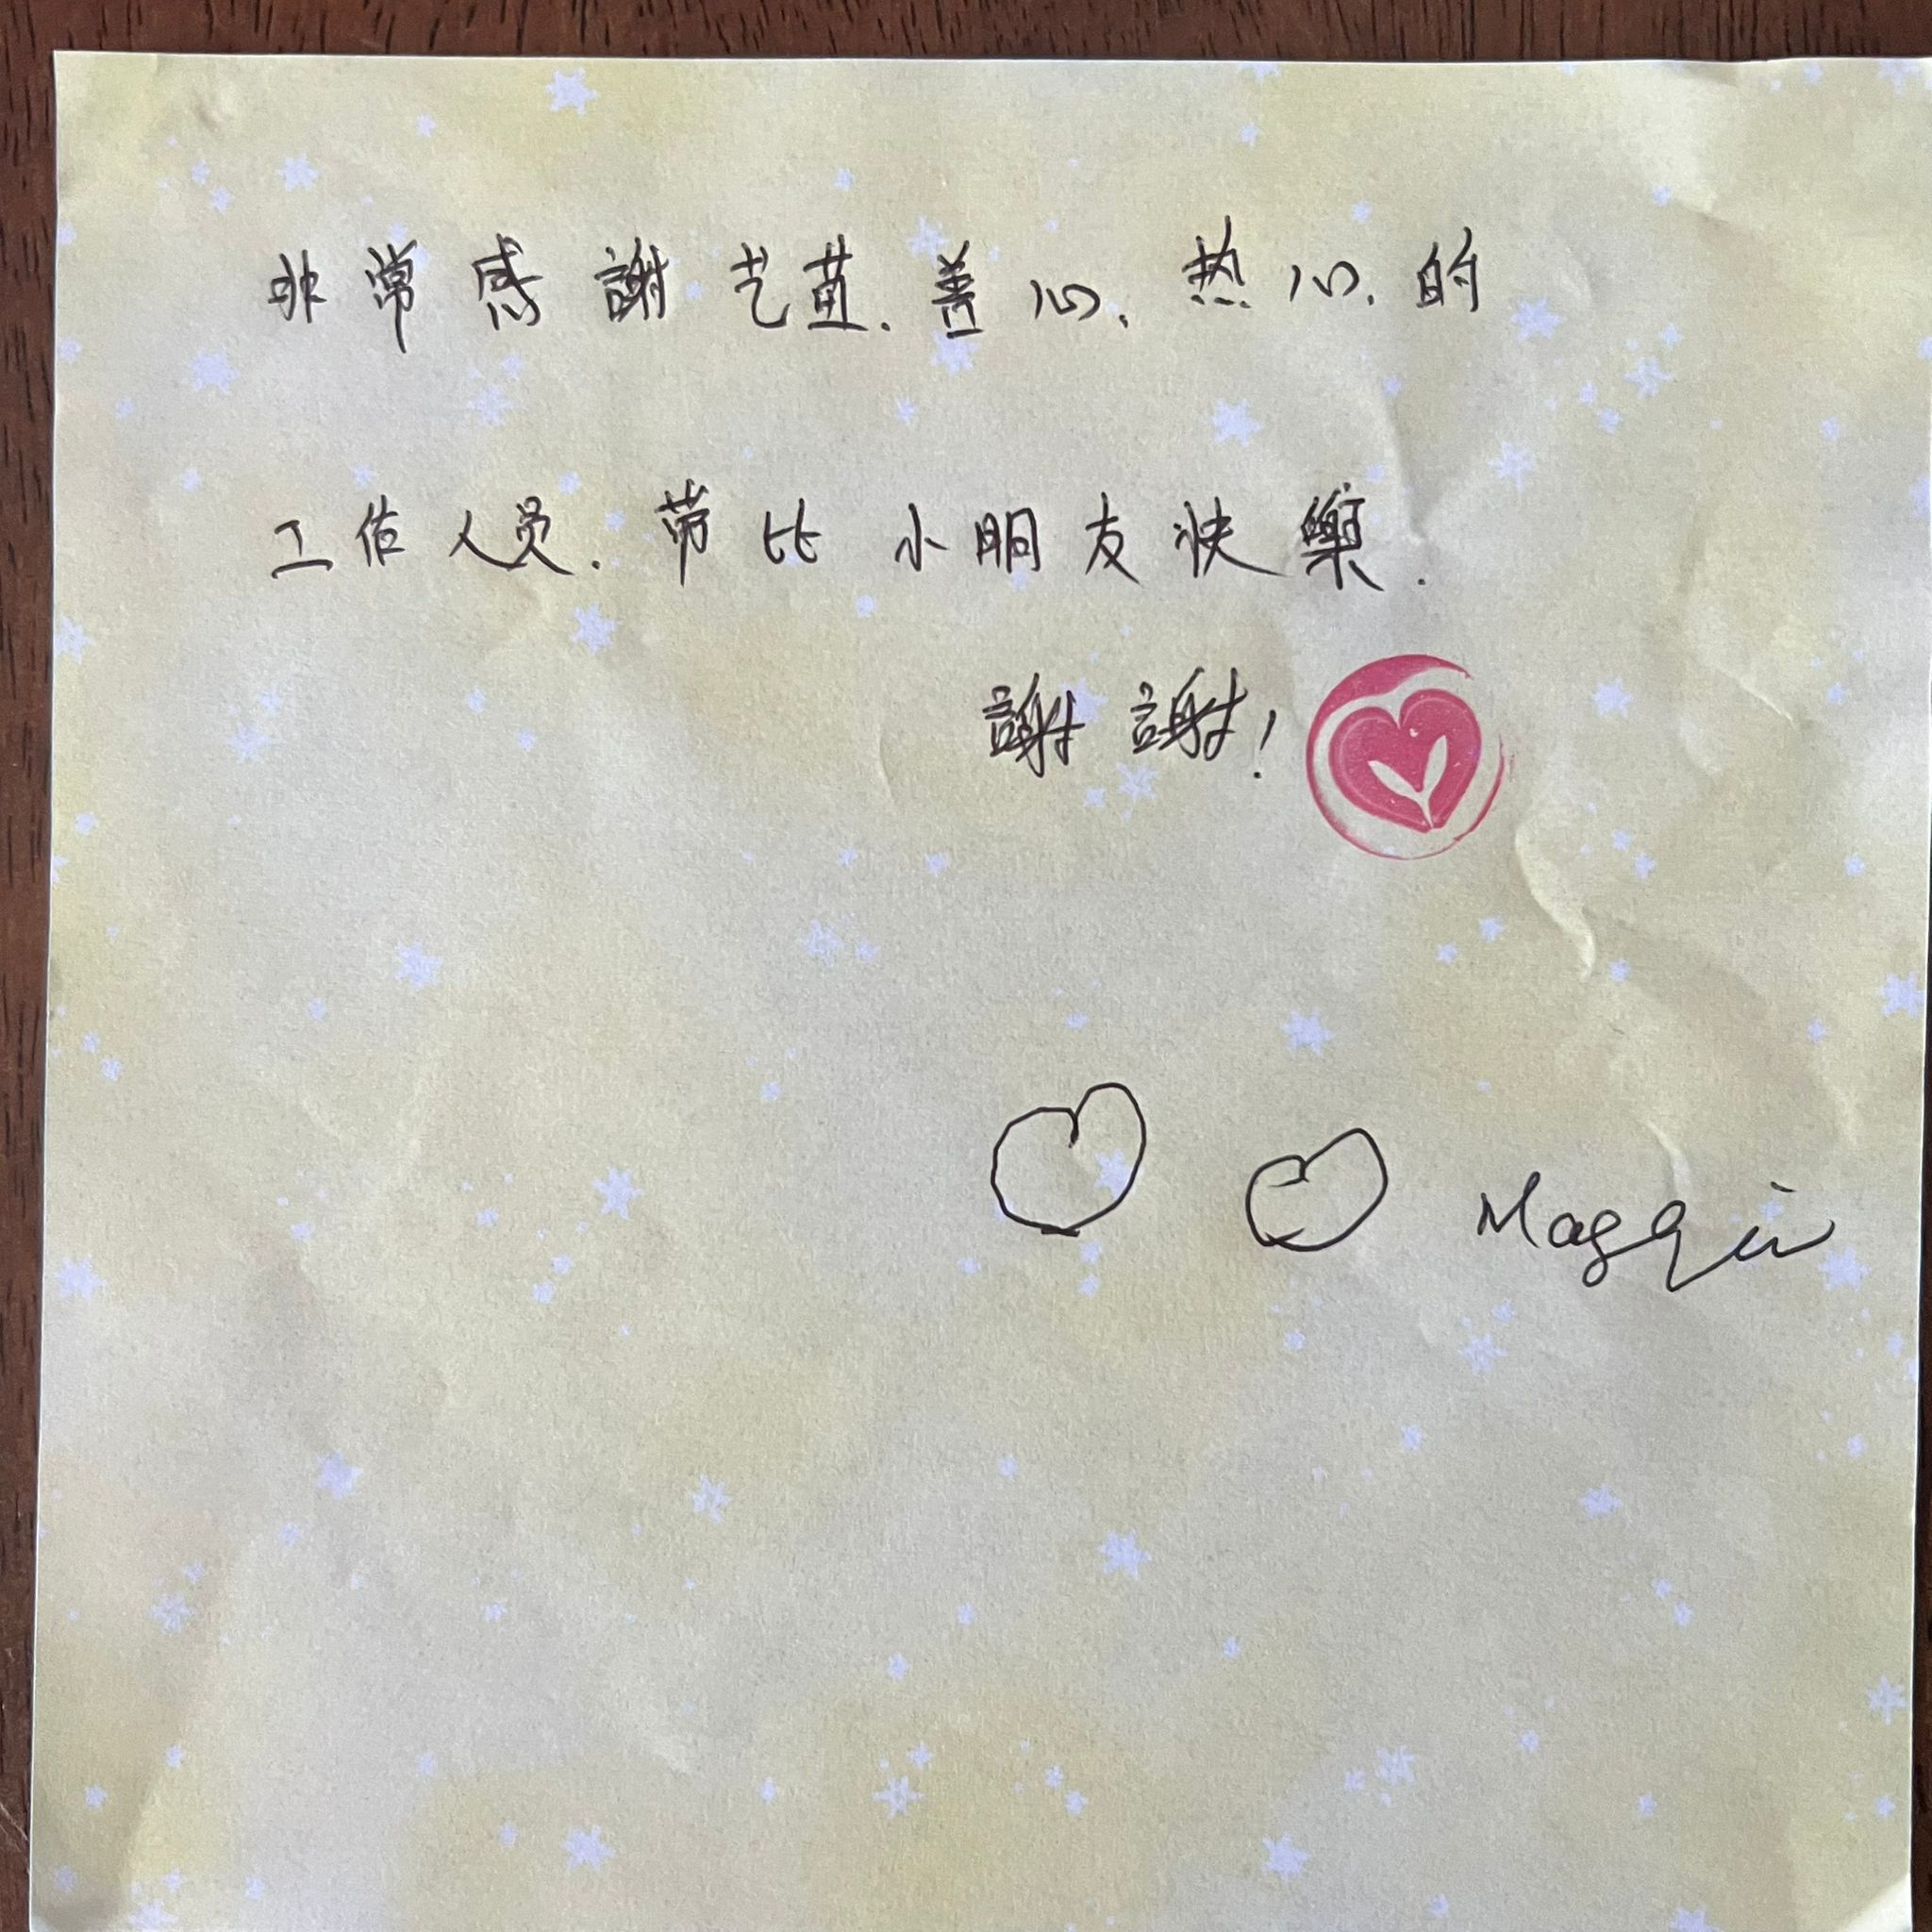 非常感謝艺苗.善心、热心.的
工作人员.带比小朋友快樂.
謝謝!
Maggie